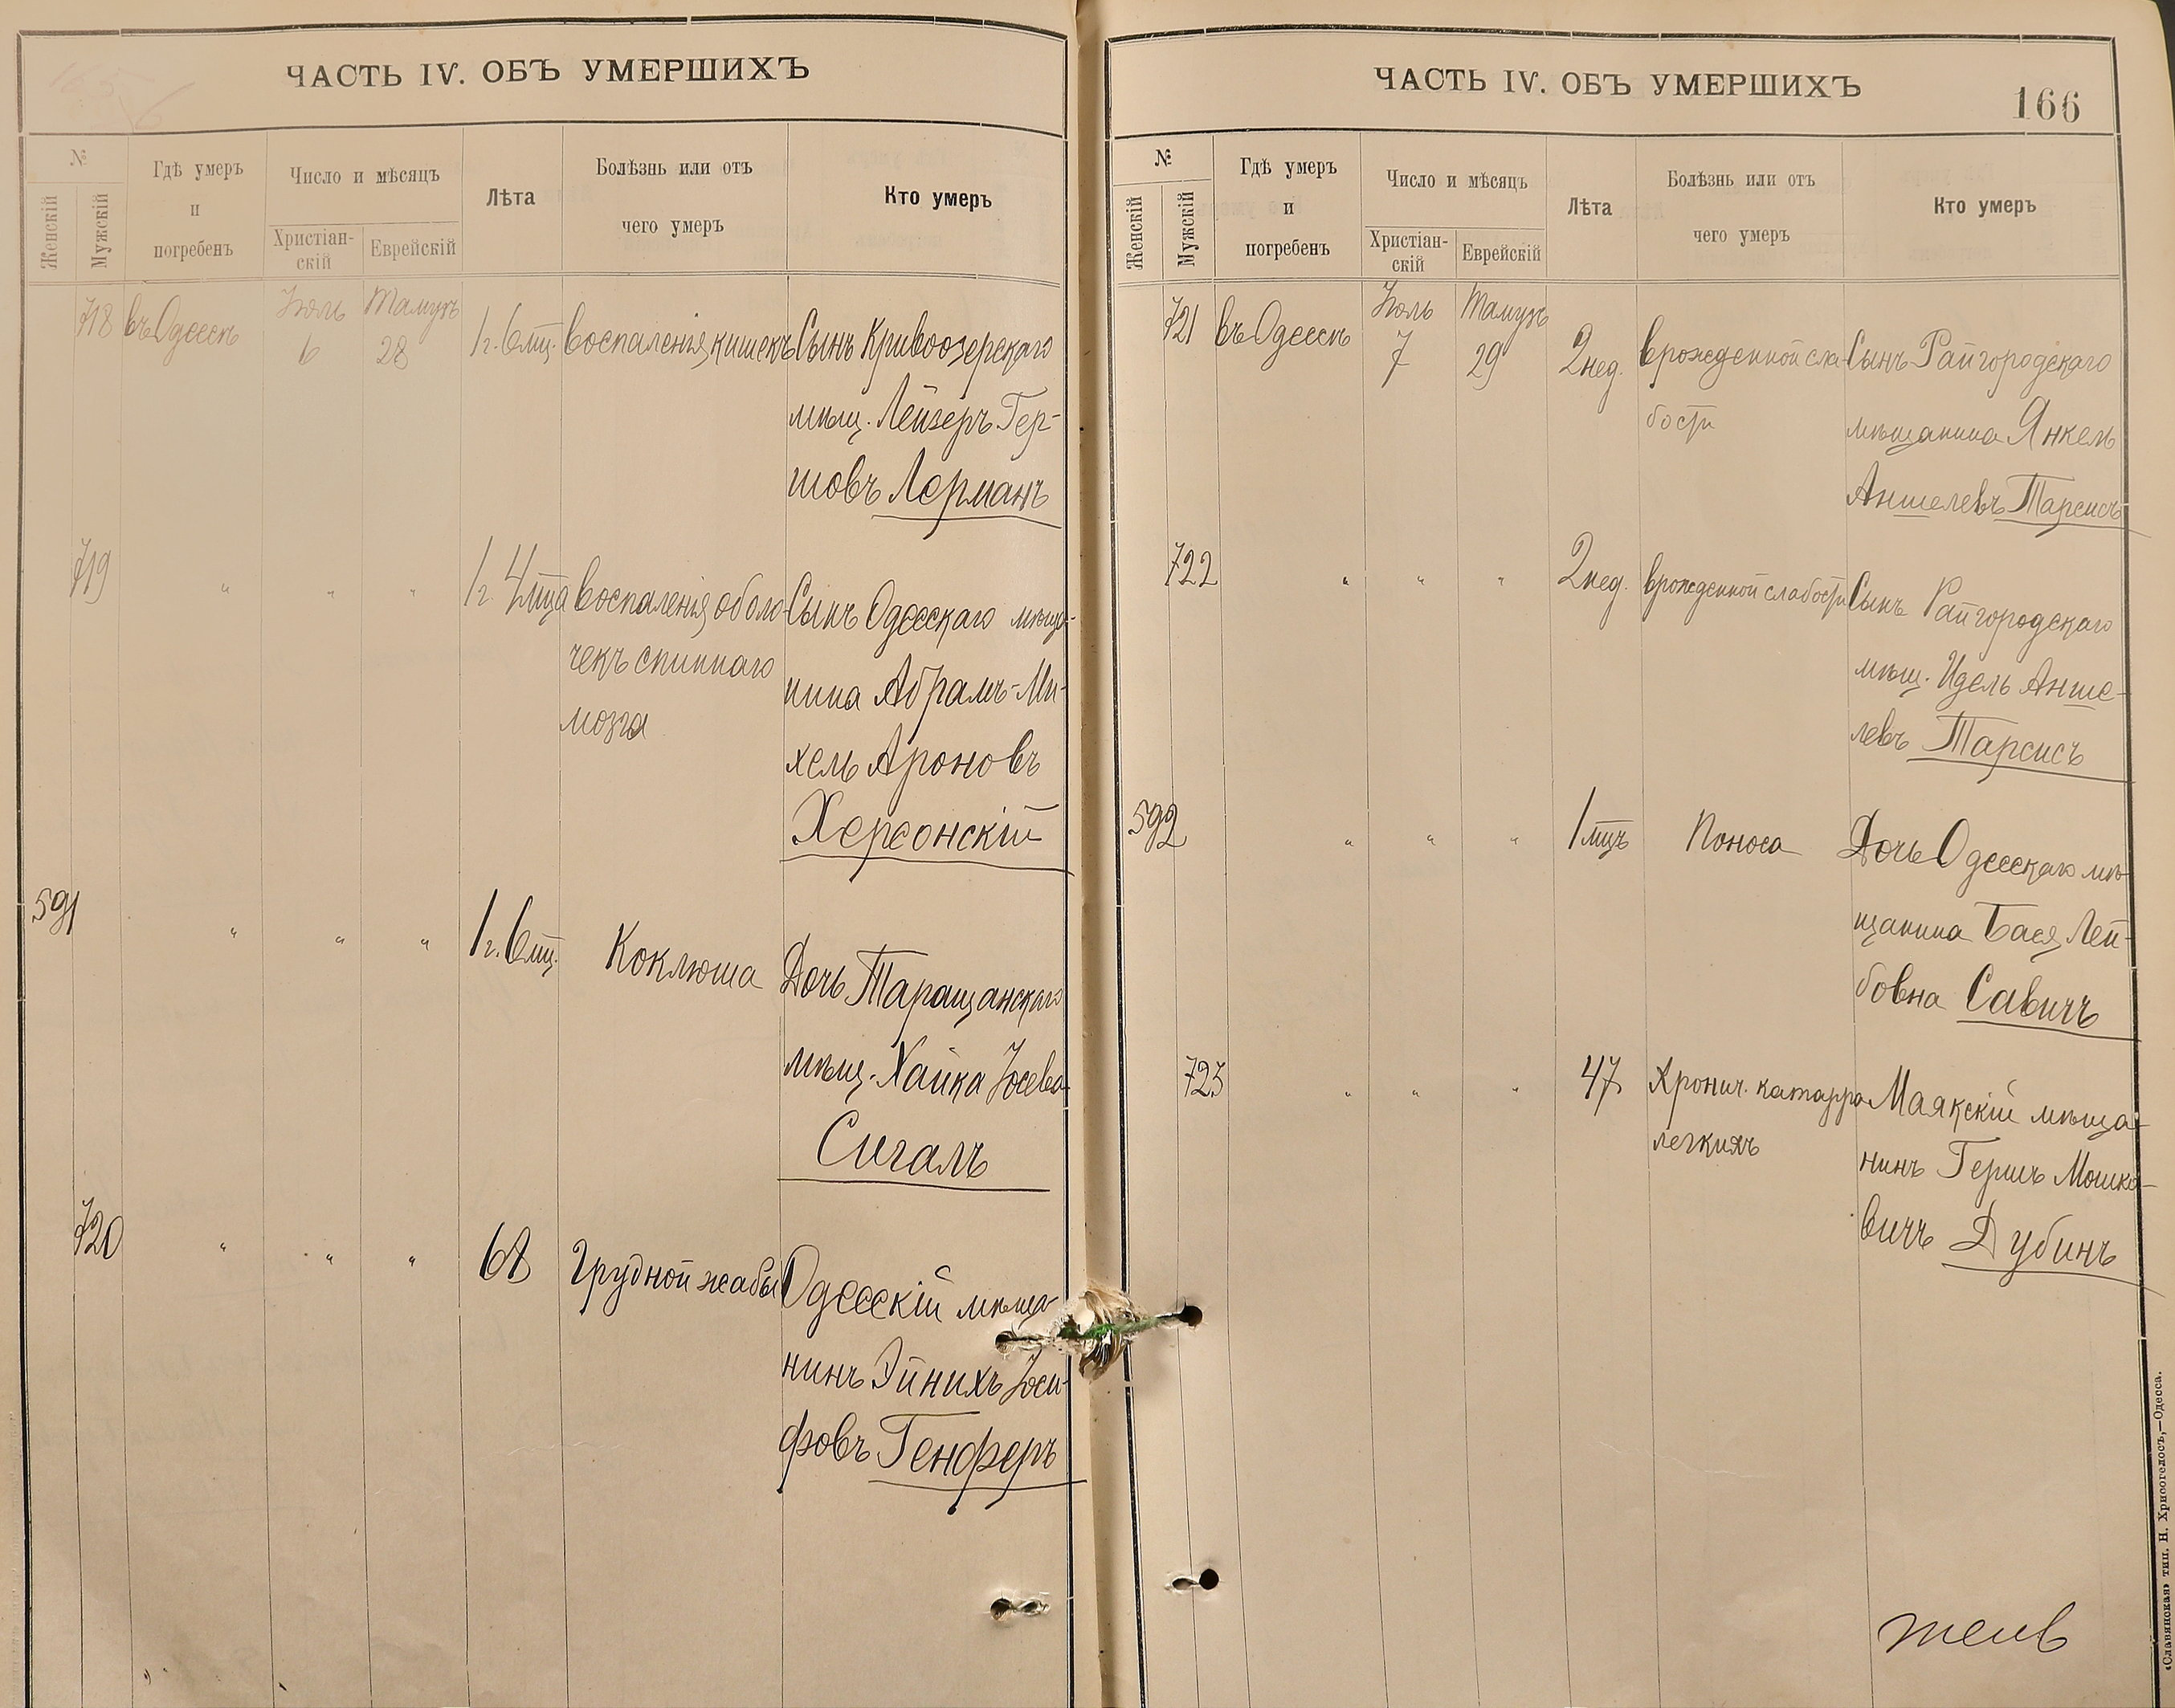 ЧАСТЬ IV. ОБЪ УМЕРШИХЪ
№
Женскій
Мужскій
Гдѣ умеръ
и
погребенъ
Число и мѣсяцъ
Христіан-
скій
Еврейскій
Лѣта
Болѣзнь или отъ
чего умеръ
Кто умеръ
718 въ Одессѣ Іюль 6 Тамузъ 28 1 г. 6 мц. воспаленія кишекъ Сынъ Кривоозерскаго
мѣщ. Лейзеръ Гер-
шовъ Лерманъ
719 " " " 1 г. 4 мца воспаленія оболо- Сынъ Одесскаго мѣща-
чекъ спиннаго нина Абрамъ-Ми-
мозга хель Ароновъ
Херсонскій
591 " " " 1 г. 6 мц. Коклюша Дочь Таращанскаго
мѣщ. Хайка Іосева
Сигалъ
720 " " " 68 Грудной жабы Одесскій мѣща-
нинъ Эйнихъ Іоси-
фовъ Генферъ
ЧАСТЬ IV. ОБЪ УМЕРШИХЪ
166
№
Женскій
Мужскій
Гдѣ умеръ
и
погребенъ
Число и мѣсяцъ
Христіан-
скій
Еврейскій
Лѣта
Болѣзнь или отъ
чего умеръ
Кто умеръ
721 въ Одессѣ Іюль 7 Тамузъ 29 2 нед. врожденной сла- Сынъ Райгородскаго
бости мѣщанина Янкель
Аншелевъ Тарсисъ
722 " " " 2 нед. врожденной слабости Сынъ Райгородскаго
мѣщ. Идель Анше-
левъ Тарсисъ
592 " " " 1 мцъ Поноса Дочь Одесскаго мѣ-
щанина Бася Лей-
бовна Савичъ
723 " " " 47 Хронич. катарра Маякскій мѣща-
легкихъ нинъ Гершъ Мошко-
вичъ Дубинъ
«Славянская» тип. Н. Хрисогелосъ,—Одесса.